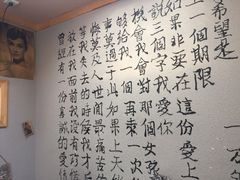 曾經有一份真誠的愛情
放在我面前我沒
等我失去的時候我才
悔莫及世間最痛苦
事莫過于此如果上天
够給我一個
機會我會對那個女孩
說三個字我愛你
如果非要在這份愛上
上個期限
希望是
一万